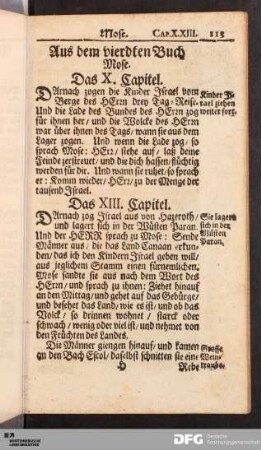 Mose. CAP.X.XIII. 115
Aus dem vierdten Buch
Mose.
Das X. Capitel.
DArnach zogen die Kinder Israel vom
Berge des HErrn drey Tag-Reise.
Und die Lade des Bundes des HErrn zog
für ihnen her/ und die Wolcke des HErrn
war über ihnen des Tags/ wann sie aus dem
Lager zogen. Und wenn die Lade zog/ so
sprach Mose: HErr/ stehe auf/ laß deine
Feinde zerstreuet/ und die dich hassen/flüchtig
werden für dir. Und wann sie ruhet/ so sprach
er: Komm wieder/ HErr/ zu der Menge der
tausend Israel.
Kinder Is-
rael ziehen
weiter fort.
Das XIII. Capitel.
DArnach zog Israel aus von Hazeroth/
und lagert sich in der Wüsten Paran.
Und der HERR sprach zu Mose: Sende
Männer aus/ die das Land Canaan erkun-
den/ das ich den Kindern Israel geben will/
aus jeglichem Stamm einen fürnemlichen.
Mose sandte sie aus nach dem Wort des
HErrn/ und sprach zu ihnen: Ziehet hinauf
an den Mittag/ und gehet auf das Gebürge/
und besehet das Land/ wie es ist/ und ob das
Volck/ so drinnen wohnet/ starck oder
schwach/ wenig oder viel ist/ und nehmet von
den Früchten des Landes.
Sie lagern
sich in der
Wüsten
Paran.
Die Männer giengen hinauf/ und kamen
an den Bach Escol/ daselbst schnitten sie eine
Rebe
Grosse
Wein-
traube.
SLUB
DFG
Deutsche
Forschungsgemeinschaft